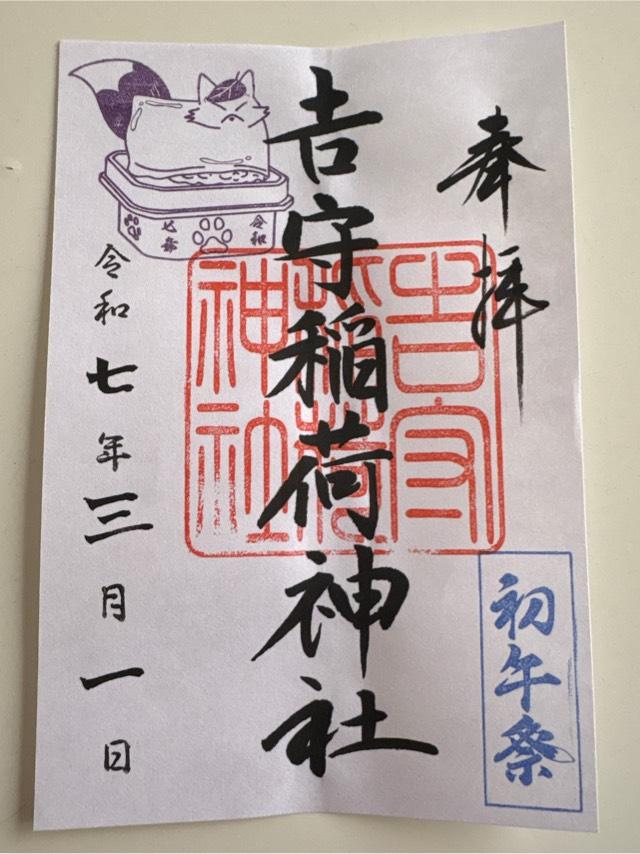 奉拝
𠮷守稲荷神社
吉守稲荷神社
初午祭
令和
七年
令和七年三月一日